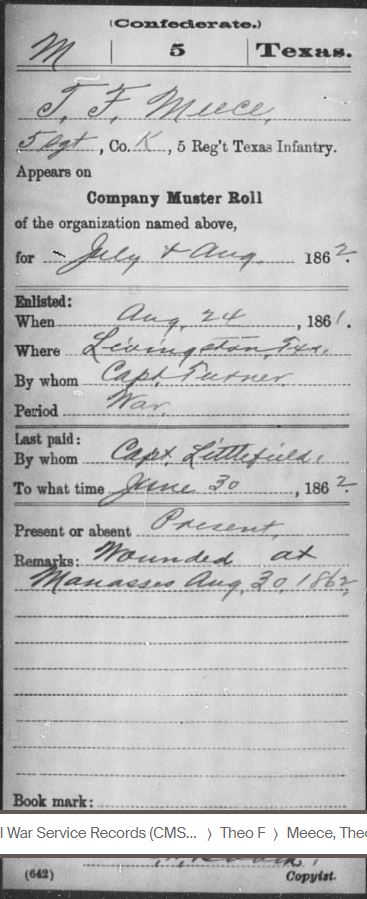 (Confederate.)
M | 5 | Texas.
T. F. Meece,
5 Sgt, Co. K, 5 Reg't Texas Infantry.
Appears on
Company Muster Roll
of the organization named above,
for July & Aug, 1862.
Enlisted:
When Aug. 24, 1861.
Where Livingston, Txs.
By whom Capt. Turner.
Period War.
Last paid:
By whom Capt. Littlefield.
To what time June 30, 1862.
Present or absent Present.
Remarks: Wounded at
Manasses Aug. 30, 1862,
Book mark:
l War Service Records (CMS... ⟩ Theo F ⟩ Meece, Theo
(642) Copyist.